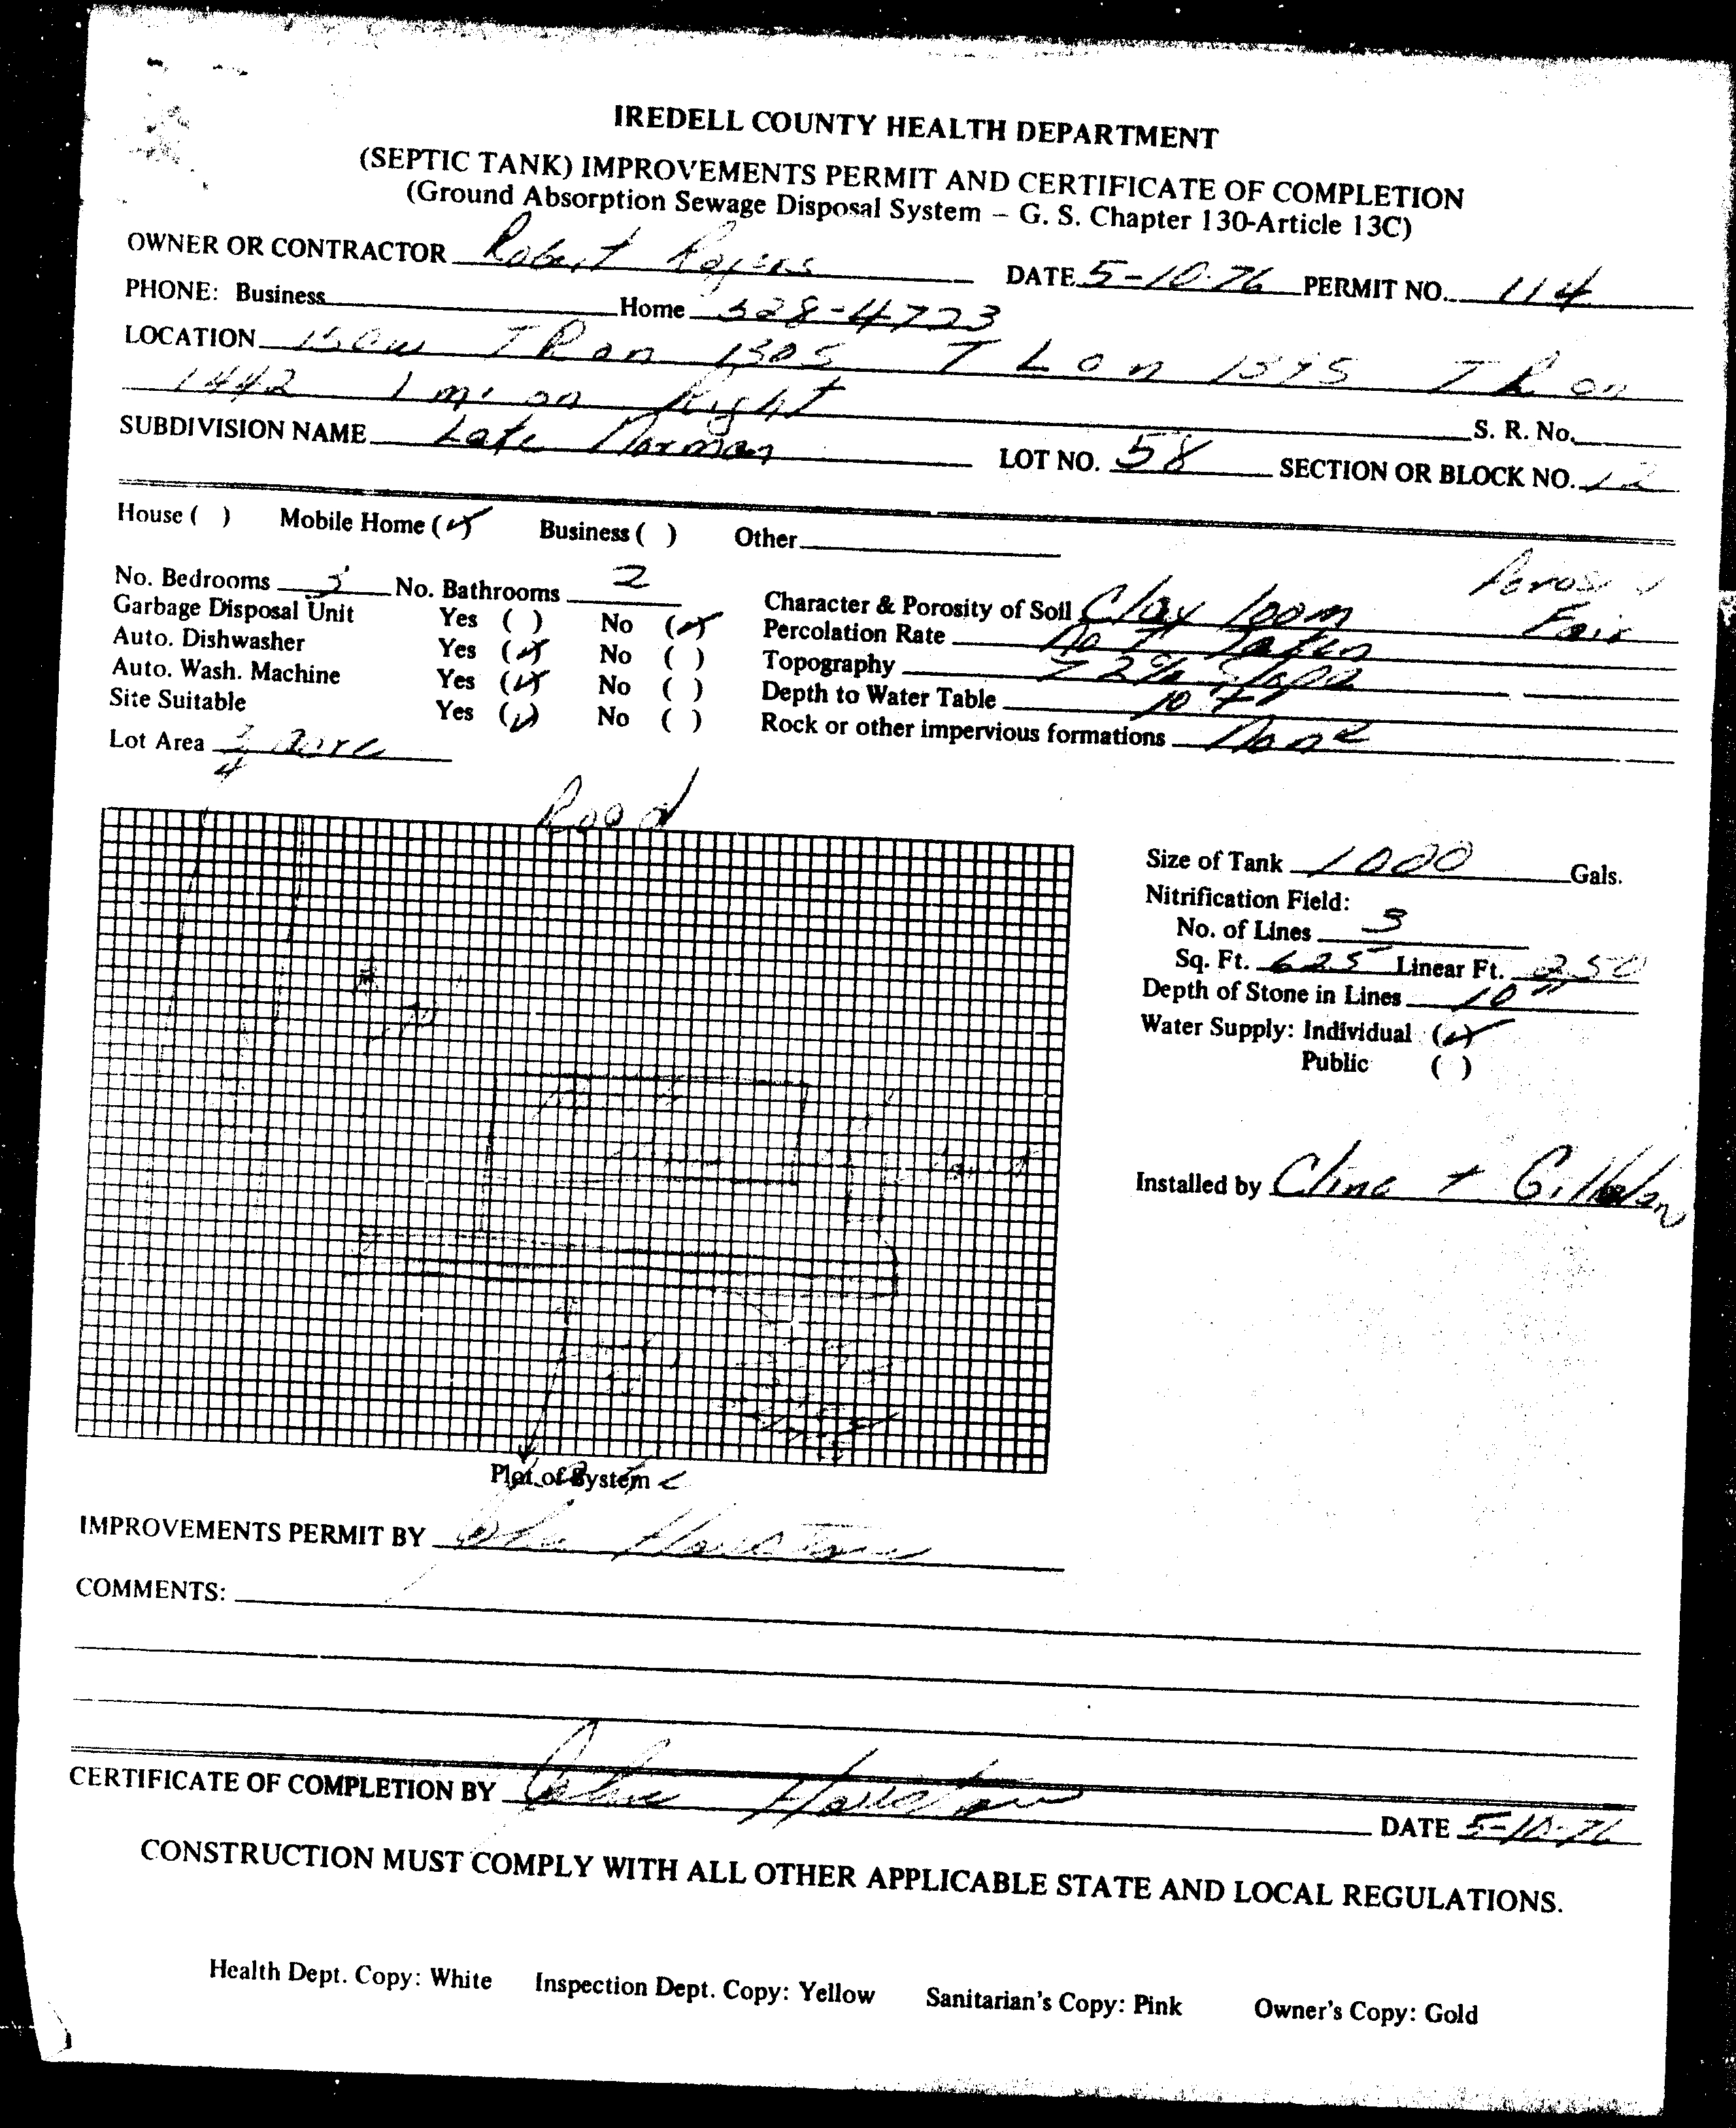 IREDELL COUNTY HEALTH DEPARTMENT
(SEPTIC TANK) IMPROVEMENTS PERMIT AND CERTIFICATE OF COMPLETION
(Ground Absorption Sewage Disposal System – G. S. Chapter 130-Article 13C)
OWNER OR CONTRACTOR Robert Rogers DATE 5-10-76 PERMIT NO. 114
PHONE: Business Home 528-4723
LOCATION 150W T R on 1305 T L on 1395 T R on
1442 1 mi on Right S. R. No.
SUBDIVISION NAME Lake Norman LOT NO. 58 SECTION OR BLOCK NO. 12
House ( ) Mobile Home (✓) Business ( ) Other
No. Bedrooms 3 No. Bathrooms 2
Garbage Disposal Unit Yes ( ) No (✓)
Auto. Dishwasher Yes (✓) No ( )
Auto. Wash. Machine Yes (✓) No ( )
Site Suitable Yes (✓) No ( )
Lot Area 3/4 acre
Character & Porosity of Soil Clay loom Fair
Percolation Rate No T Taken
Topography > 2% Slope
Depth to Water Table 10 +
Rock or other impervious formations None
Road
Size of Tank 1000 Gals.
Nitrification Field:
No. of Lines 3
Sq. Ft. 625 Linear Ft. 250
Depth of Stone in Lines 10"
Water Supply: Individual (✓)
Public ( )
Installed by Cline +
Plot of System
IMPROVEMENTS PERMIT BY
COMMENTS:
CERTIFICATE OF COMPLETION BY DATE 5-10-76
CONSTRUCTION MUST COMPLY WITH ALL OTHER APPLICABLE STATE AND LOCAL REGULATIONS.
Health Dept. Copy: White Inspection Dept. Copy: Yellow Sanitarian's Copy: Pink Owner's Copy: Gold